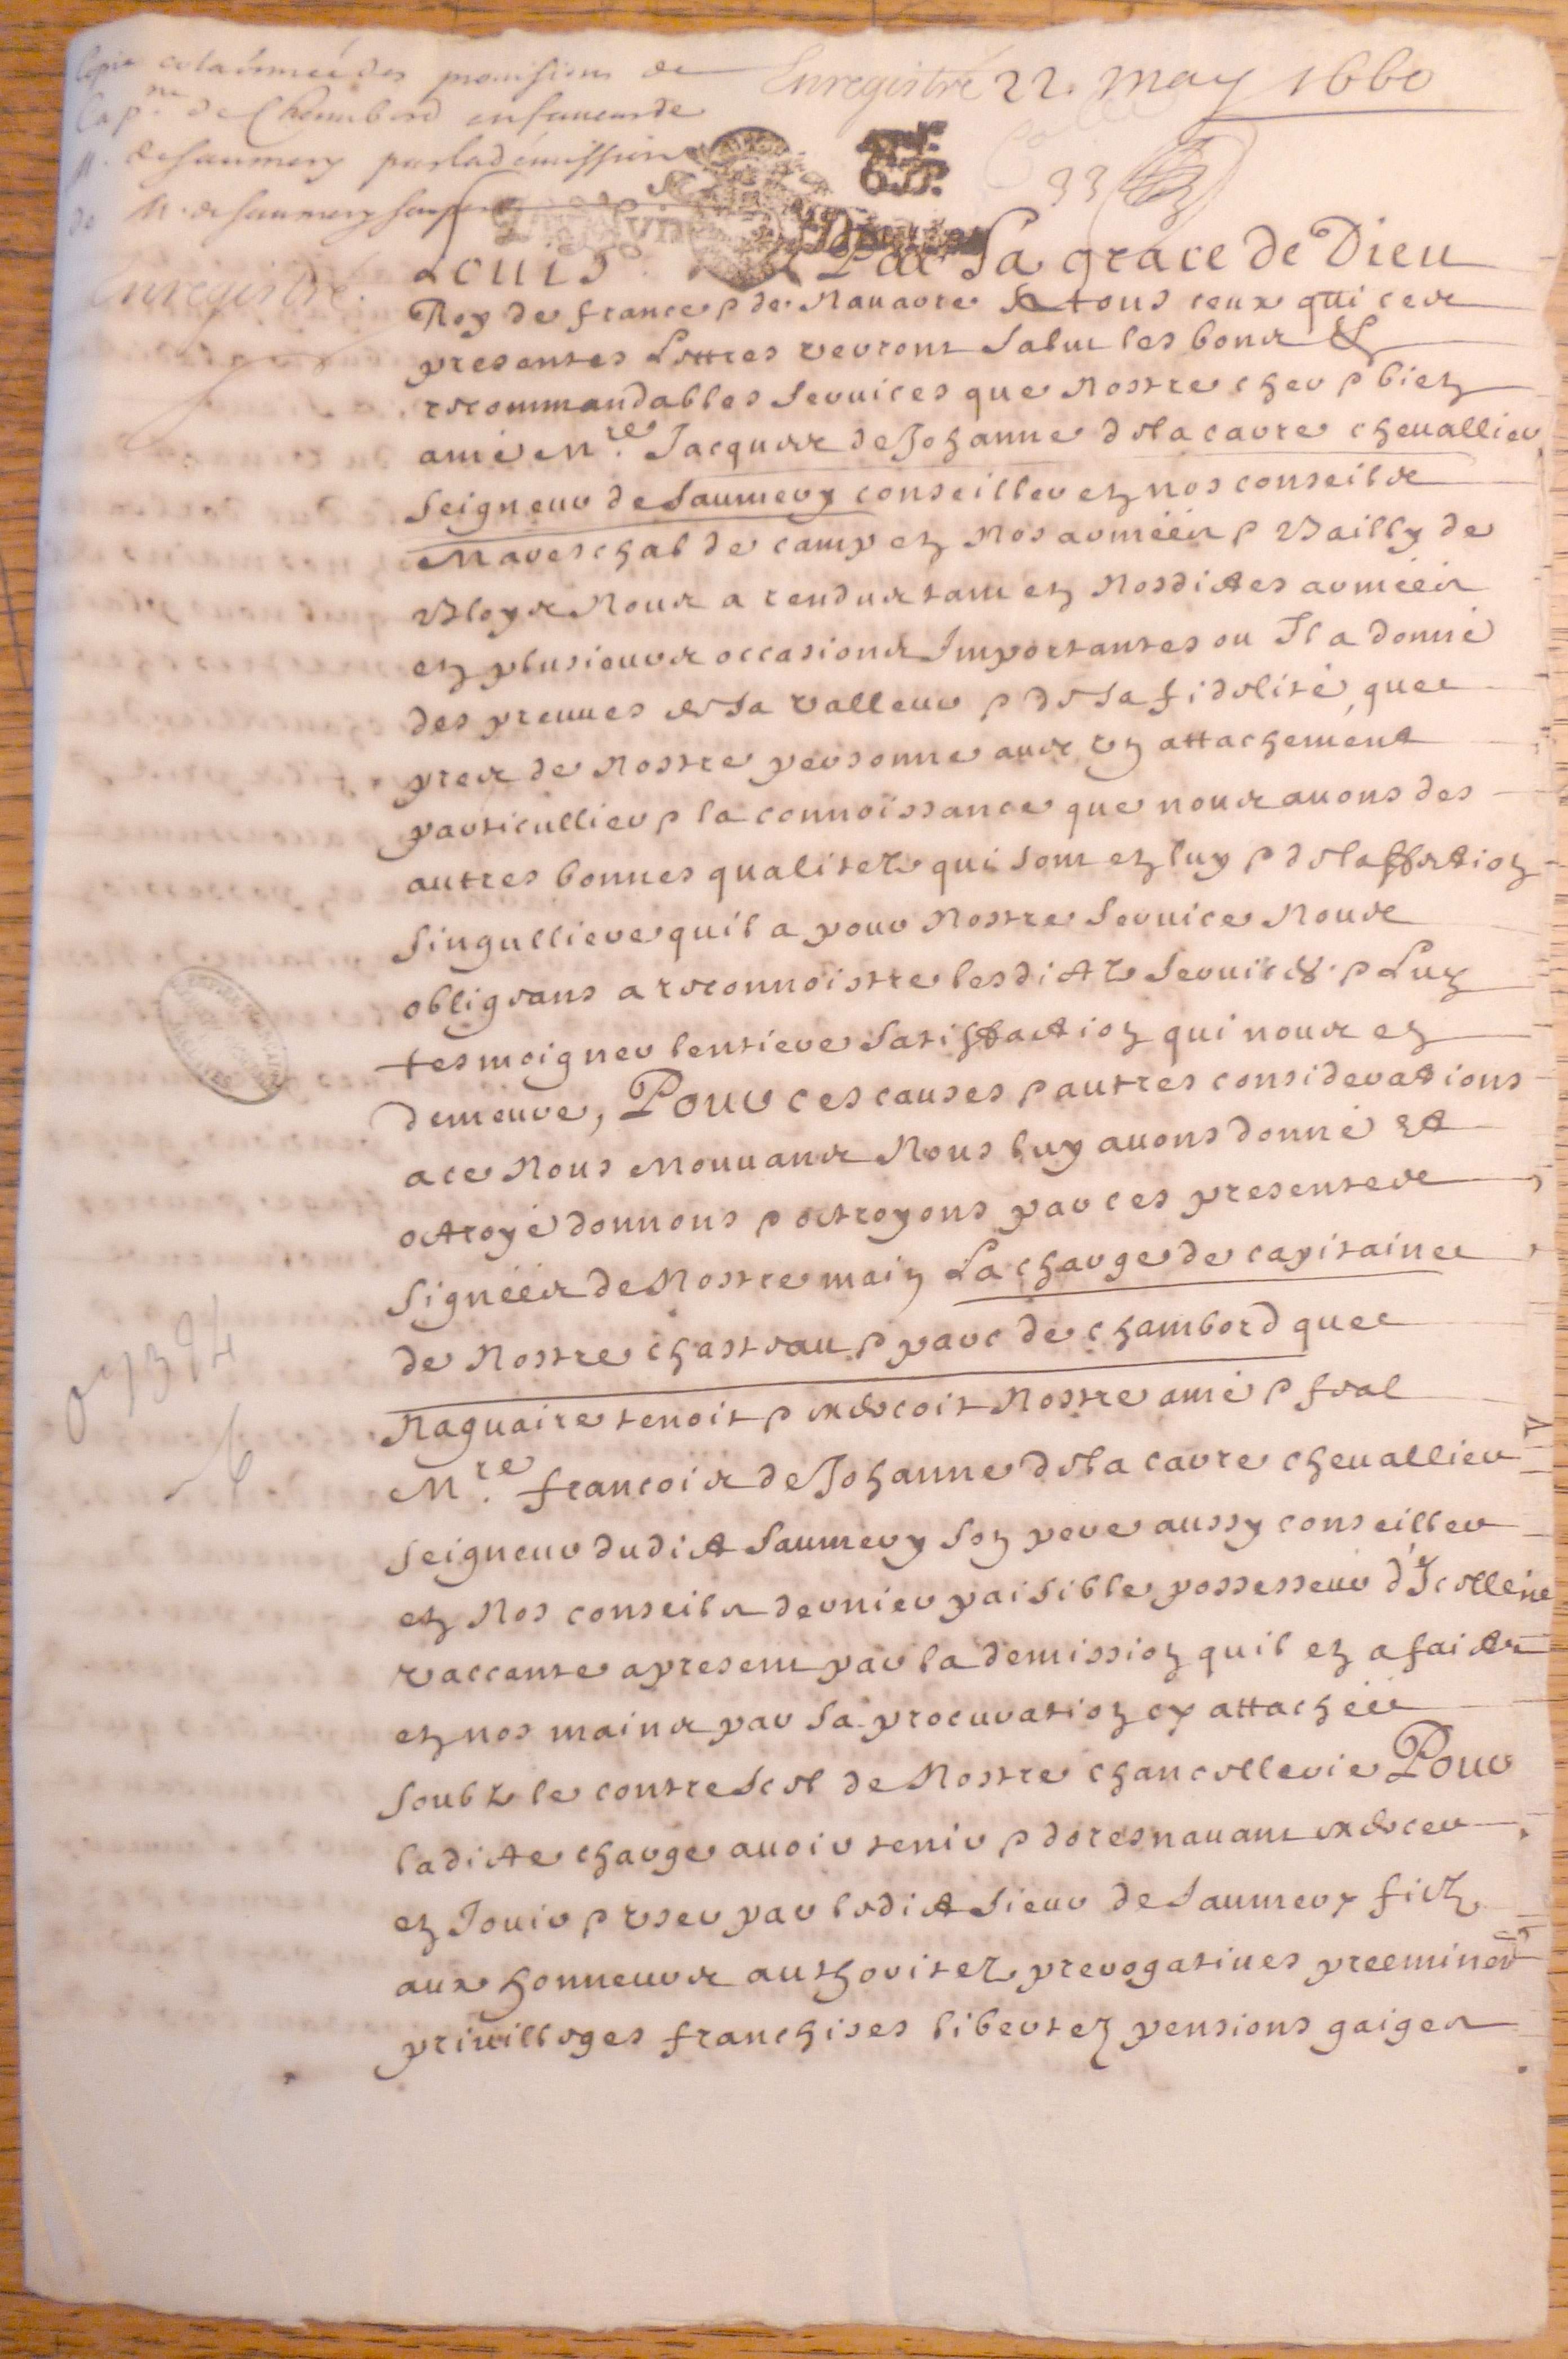 Copie colationnée des provisions de
Cap.ne de Chambord en faueur de
M. de Saumery par la demission
de M. de Saumery son pere
Enregistré 22. May 1660
33
Enregistré.
Louis Par La grace de Dieu
Roy de france & de Nauarre A tous ceux qui ces
presentes Lettres verront Salut les bons &
recommandables Seruices que Nostre cher & bien
amé M.re Jacques de Johanne de la carre cheuallier
Seigneur de Saumery conseiller en nos conseils
Mareschal de camp en Nos armées & Bailly de
Bloys Nous a rendus tant en Nosdittes armées
en plusieurs occasions Importantes ou Il a donné
des preuues de sa valleur & de sa fidelité, que
pres de Nostre personne auec vn attachement
particullier & la connoissance que nous auons des
autres bonnes qualitez qui sont en luy & de laffection
Singulliere quil a pour Nostre Seruice Nous
obligeans a reconnoistre lesdictz Seruices & Luy
tesmoigner lentiere Satisfaction qui nous en
demeure, Pour ces causes & autres considerations
a ce Nous Mouuans Nous luy auons donné et
octroyé donnons & octroyons par ces presentes
Signées de Nostre main La charge de capitaine
de Nostre chasteau & parc de chambord que
Naguaire tenoit & exercoit Nostre amé & feal
M.re francois de Johanne de la carre cheuallier
Seigneur dudict Saumery son pere aussy conseiller
en Nos conseils dernier paisible possesseur d'Icelle
vaccante apresent par la demission quil en a faicte
en nos mains par sa procuration cy attachée
Soubz le contre Scel de Nostre chancellerie Pour
ladicte charge auoir tenir & doresnauant exercer
en Jouir & vser par ledict Sieur de Saumery filz
aux honneurs authoritez prerogatiues preeminen
priuilleges franchises libertez pensions gaiges